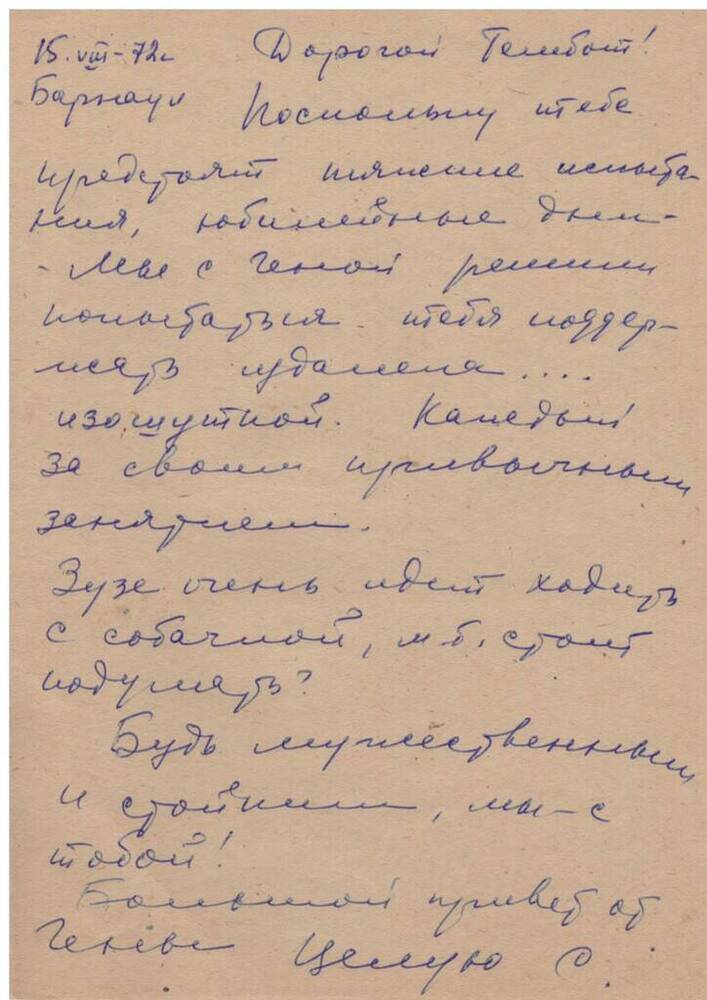 15.VIII-72г Дорогой Тембот!
Барнаул Поскольку тебе
предстоят тяжкие испыта-
ния, юбилейные дни-
- Мы с Геной решили
попытаться тебя поддер-
жать издалека....
изошуткой. Каждый
за своим привычным
занятием.
Зузе очень идет ходить
с собачкой, м.б. стоит
подумать?
Будь мужественным
и стойким, мы-с
тобой!
Большой привет от
Гены Целую С.